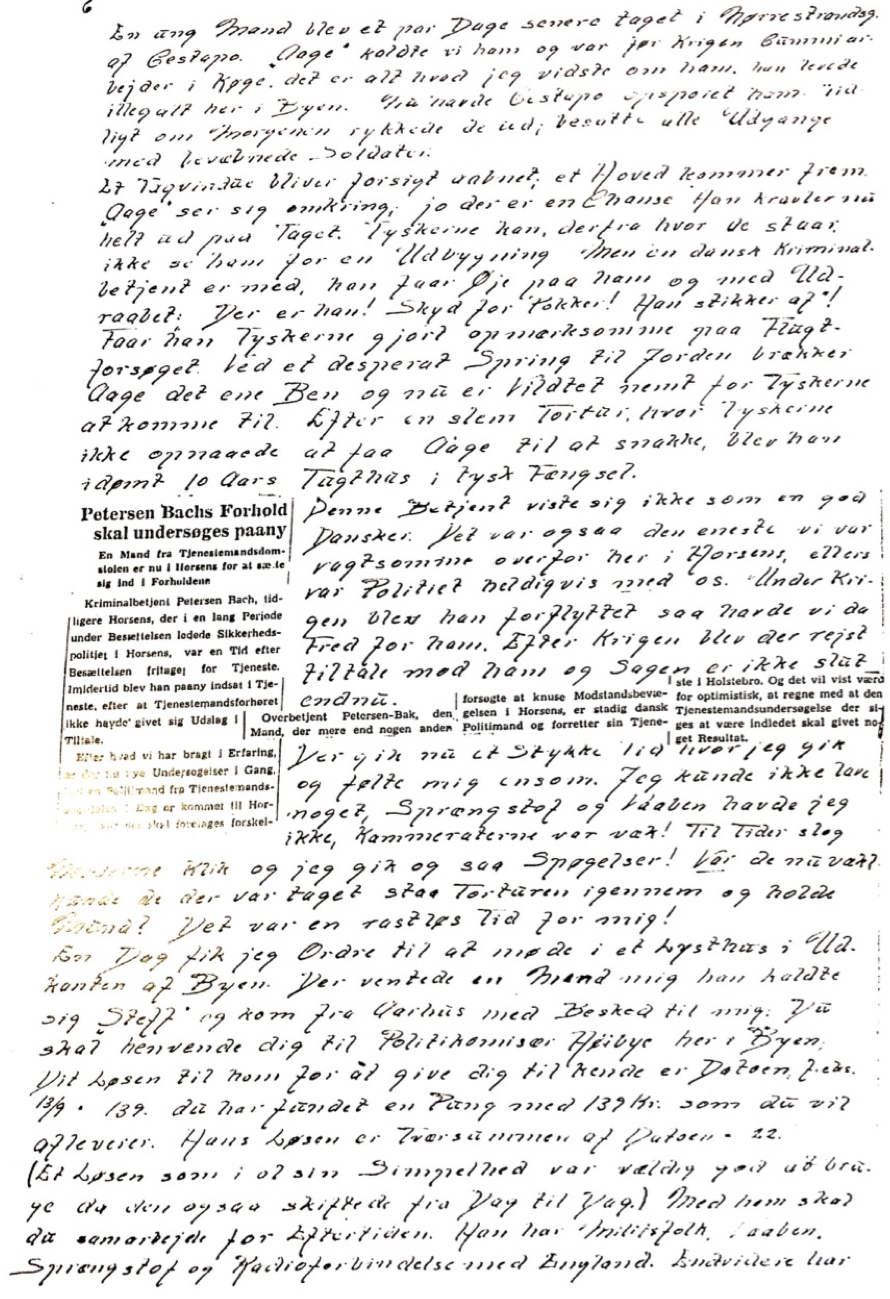 6
En ung Mand blev et par Dage senere taget i Nørrestrandsg.
af Gestapo. "Aage" kaldte vi ham og var før Krigen Gummiar-
bejder i Køge, det er alt hvad jeg vidste om ham, han levede
illegalt her i Byen. Nu havde Gestapo opsporet ham. Tid-
ligt om Morgenen rykkede de ud, besatte alle Udgange
med bevæbnede Soldater.
Et Tagvindue bliver forsigt aabnet, et Hoved kommer frem.
"Aage" ser sig omkring, jo der er en Chanse Han kravler nu
helt ud paa Taget. Tyskerne kan, derfra hvor de staar,
ikke se ham for en Udbygning Men en dansk Kriminal-
betjent er med, han faar Øje paa ham og med Ud-
raabet: Der er han! Skyd for Pokker! Han stikker af"!
Faar han Tyskerne gjort opmærksomme paa Flugt-
forsøget. Ved et desperat Spring til Jorden brækker
Aage det ene Ben og nu er Vildtet nemt for Tyskerne
at komme til. Efter en slem Tortur, hvor Tyskerne
ikke opnaaede at faa Aage til at snakke, blev han
idømt 10 Aars Tugthus i tysk Fængsel.
Petersen Bachs Forhold
skal undersøges paany
En Mand fra Tjenestemandsdom-
stolen er nu i Horsens for at sætte
sig ind i Forholdene
Kriminalbetjent Petersen Bach, tid-
ligere Horsens, der i en lang Periode
under Besættelsen ledede Sikkerheds-
politiet i Horsens, var en Tid efter
Besættelsen fritaget for Tjeneste.
Imidlertid blev han paany indsat i Tje-
neste, efter at Tjenestemandsforhøret
ikke havde givet sig Udslag i
Tiltale.
Efter hvad vi har bragt i Erfaring,
er der nu nye Undersøgelser i Gang,
Politimand fra Tjenestemands-
i Dag er kommet til Hor-
skal foretages forskel-
Denne Betjent viste sig ikke som en god
Dansker. Det var ogsaa den eneste vi var
vagtsomme overfor her i Horsens, ellers
var Politiet heldigvis med os. Under Kri-
gen blev han forflyttet saa havde vi da
Fred for ham. Efter Krigen blev der rejst
tiltale mod ham og Sagen er ikke slut
endnu.
Overbetjent Petersen-Bak, den
Mand, der mere end nogen anden
forsøgte at knuse Modstandsbevæ-
gelsen i Horsens, er stadig dansk
Politimand og forretter sin Tjene-
ste i Holstebro. Og det vil vist være
for optimistisk, at regne med at den
Tjenestemandsundersøgelse der si-
ges at være indledet skal givet no-
get Resultat.
Der gik nu et Stykke Tid hvor jeg gik
og følte mig ensom. Jeg kunde ikke lave
noget, Sprængstof og Vaaben havde jeg
ikke, Kammeraterne var væk! Til Tider slog
Nerverne Klik og jeg gik og saa Spøgelser! Var de nu væk!
kunde de der var taget staa Torturen igennem og holde
Mund? Det var en rastløs Tid for mig!
En Dag fik jeg Ordre til at møde i et Lysthus i Ud-
kanten af Byen. Der ventede en Mand mig han kaldte
sig "Steff" og kom fra Aarhus med Besked til mig: Du
skal henvende dig til Politikomisær Høibye her i Byen.
Dit Løsen til ham for at give dig til kende er Datoen, f.eks.
13/9 - 139. du har fundet en Pung med 139 Kr. som du vil
afleverer. Hans Løsen er Tværsummen af Datoen - 22.
(Et Løsen som i al sin Simpelhed var vældig god at bru-
ge da den ogsaa skiftede fra Dag til Dag.) Med ham skal
du samarbejde for Eftertiden. Han har Militsfolk, Vaaben,
Sprængstof og Radioforbindelse med England. Endvidere har